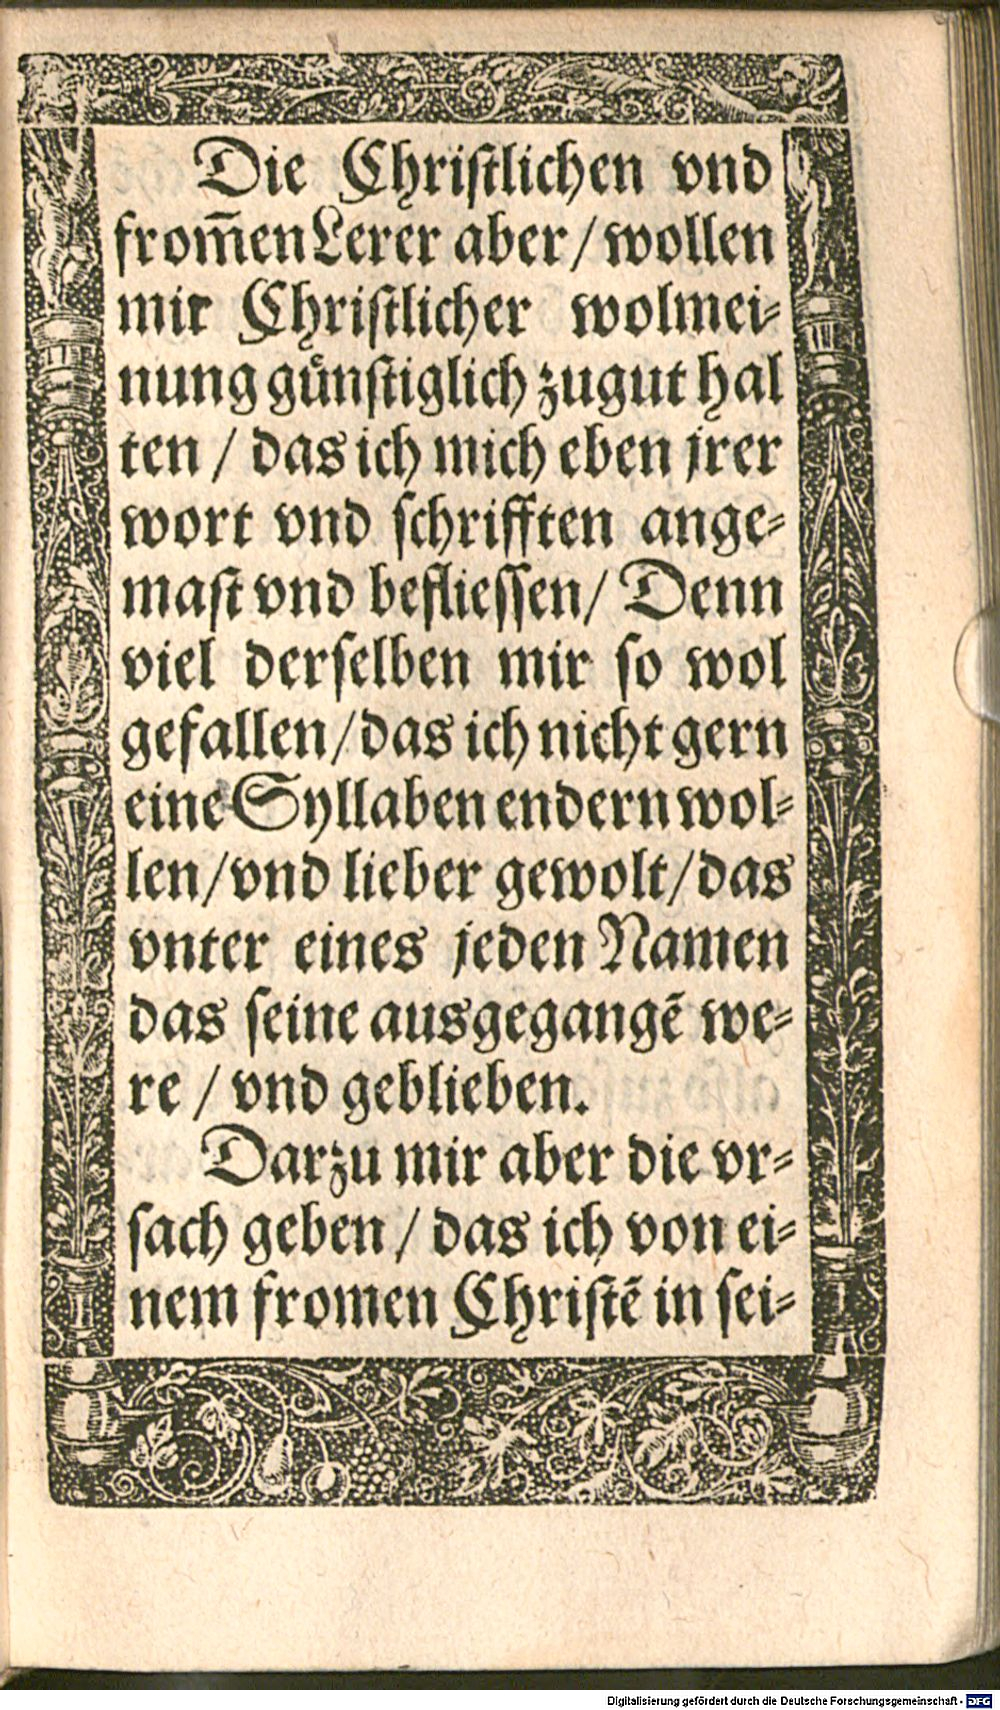 Die Chriſtlichen vnd
from̃en Lerer aber / wollen
mir Chriſtlicher wolmei⸗
nung guͤnſtiglich zugut hal
ten / das ich mich eben jrer
wort vnd ſchrifften ange⸗
maſt vnd beflieſſen / Denn
viel derſelben mir ſo wol
gefallen / das ich nicht gern
eine Syllaben endern wol⸗
len / vnd lieber gewolt / das
vnter eines jeden Namen
das ſeine ausgegangẽ we⸗
re / vnd geblieben.
Darzu mir aber die vr⸗
ſach geben / das ich von ei⸗
nem fromen Chriſtẽ in ſei⸗
Digitalisierung gefördert durch die Deutsche Forschungsgemeinschaft - DFG